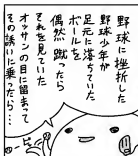 野球に挫折した
野球少年が
足元に落ちていた
ボールを
偶然 蹴ったら
それを見ていた
オッサンの目に留まって
その誘いに乗ったら…